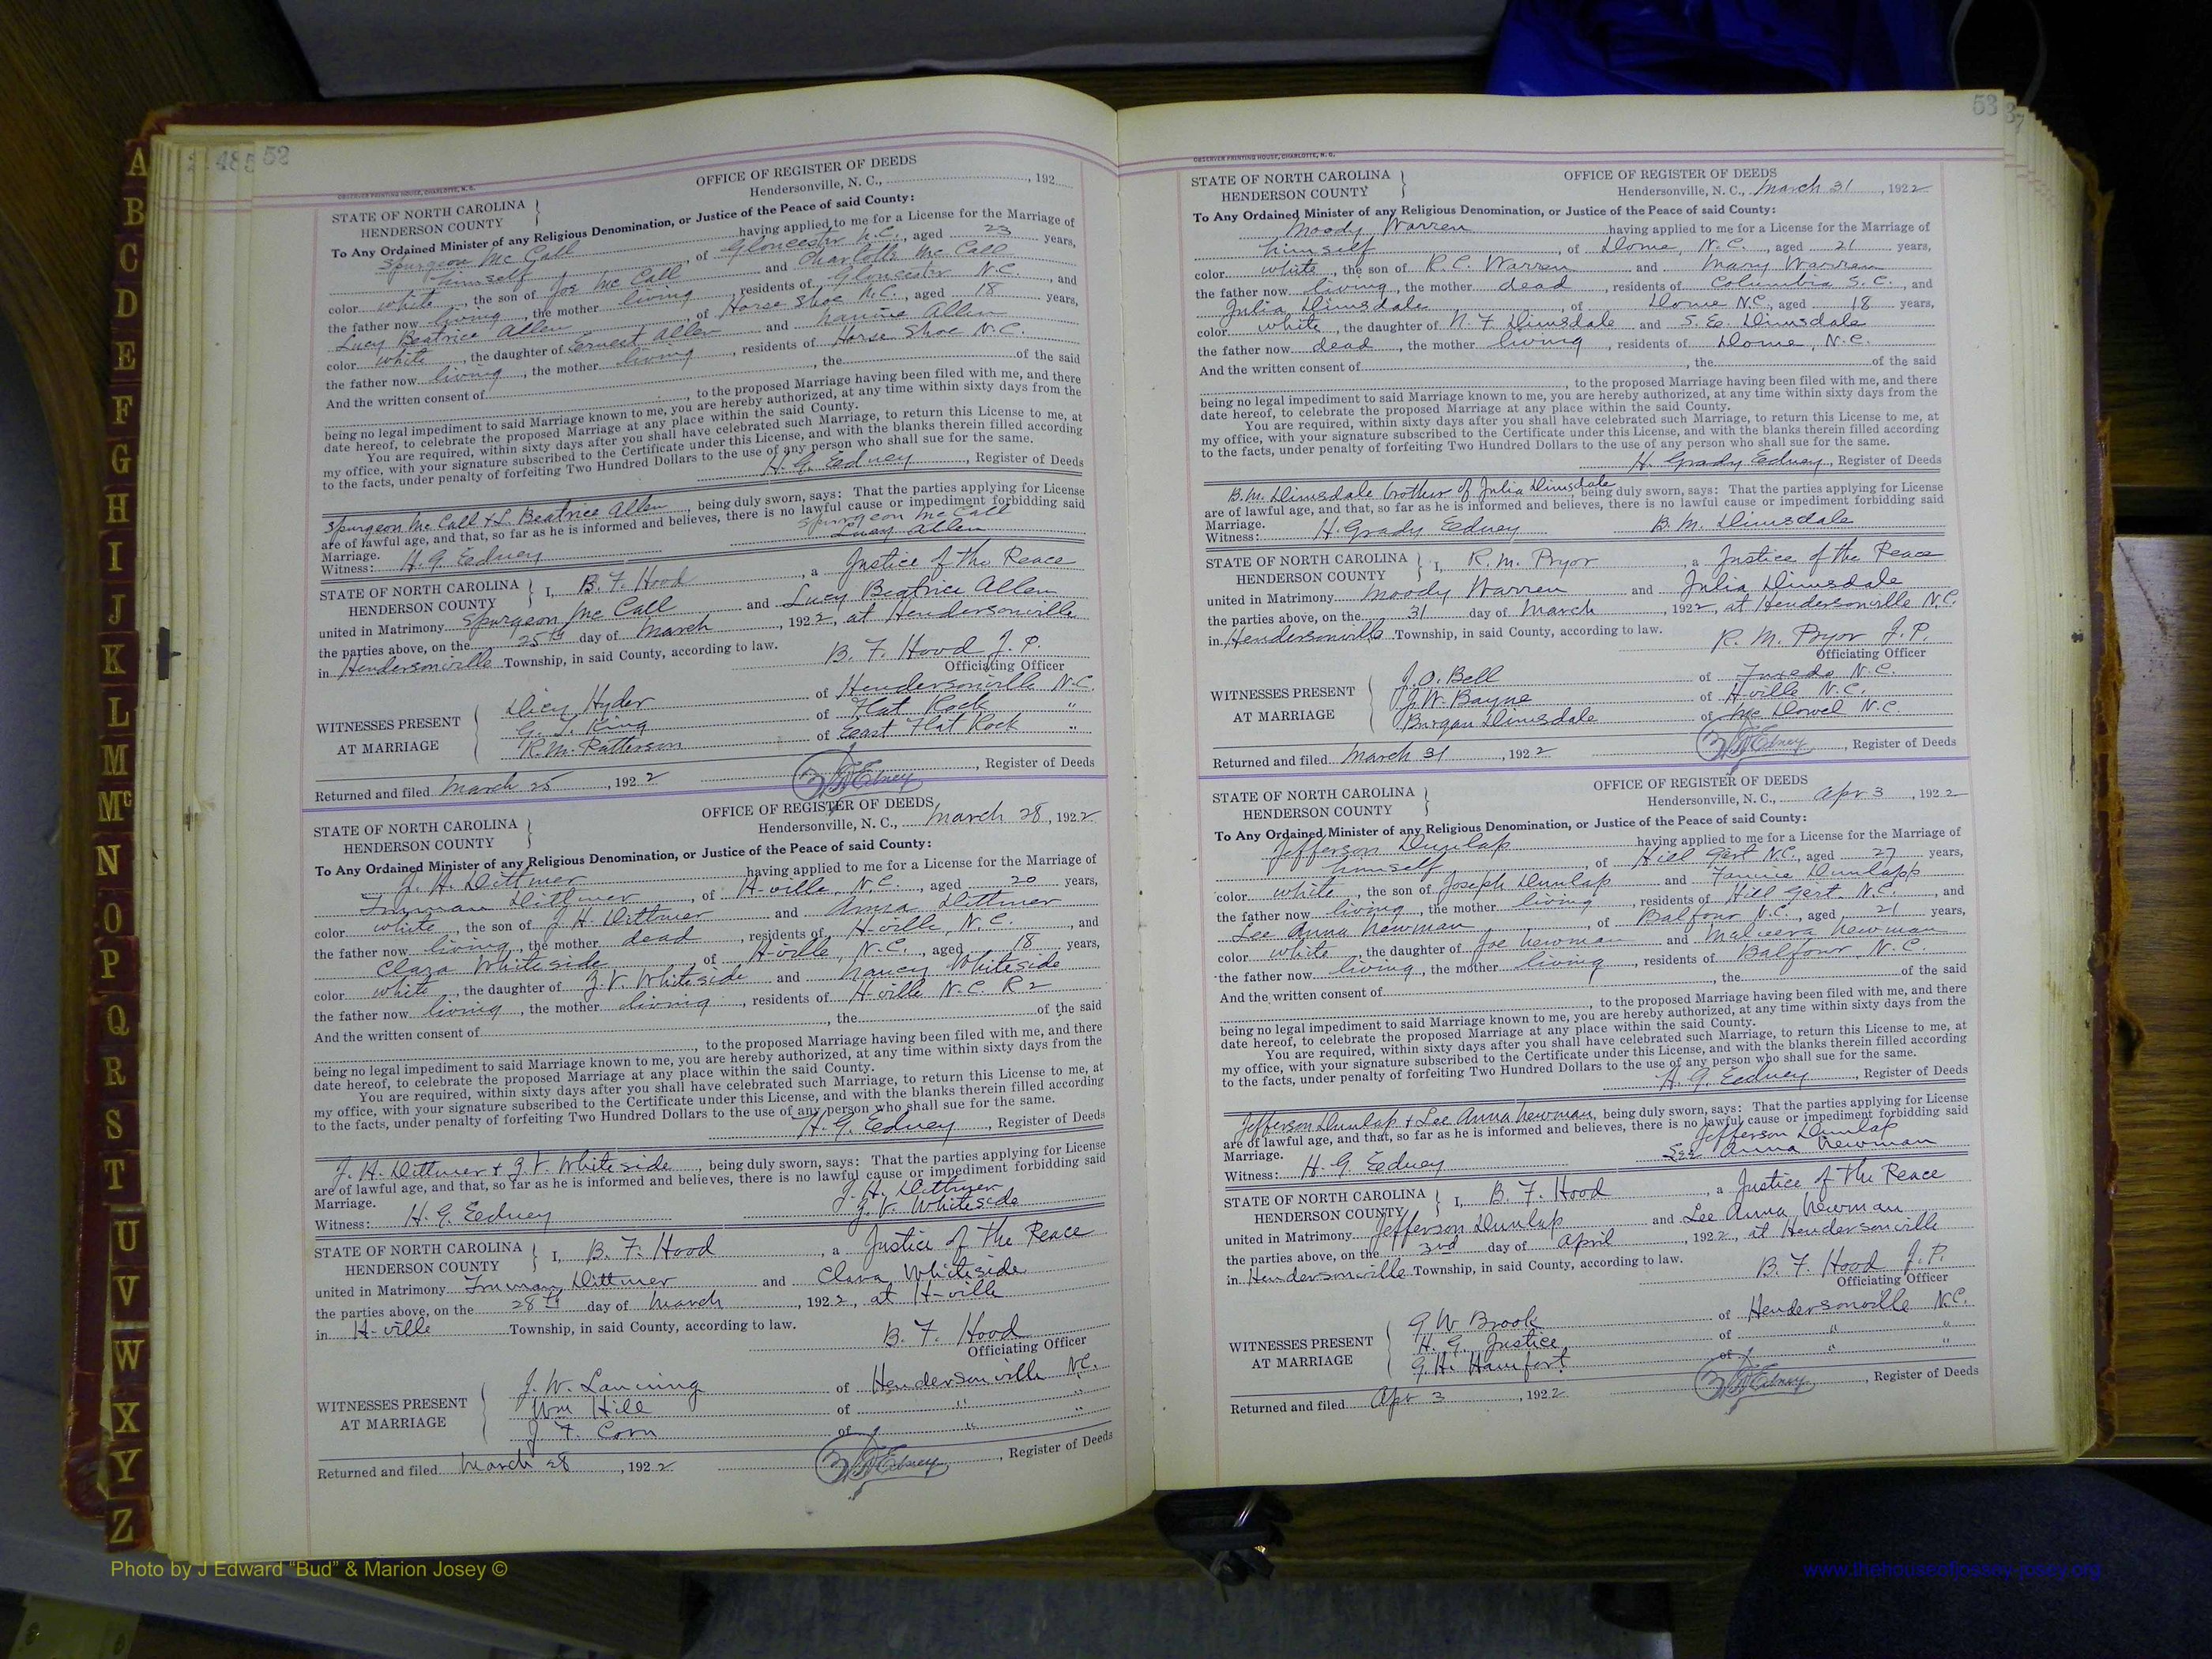 52
OBSERVER PRINTING HOUSE, CHARLOTTE, N. C.
OFFICE OF REGISTER OF DEEDS
Hendersonville, N. C., , 192
STATE OF NORTH CAROLINA
HENDERSON COUNTY
To Any Ordained Minister of any Religious Denomination, or Justice of the Peace of said County:
Spurgeon Mc Call having applied to me for a License for the Marriage of
himself , of Gloucester N.C. , aged 23 years,
color white , the son of Jos Mc Call and Charlotte Mc Call
the father now living , the mother living , residents of Gloucester N.C. , and
Lucy Beatrice Allen of Horse Shoe N.C. , aged 18 years,
color white , the daughter of Ernest Allen and Nannie Allen
the father now living , the mother living , residents of Horse Shoe N.C.
And the written consent of , the of the said
, to the proposed Marriage having been filed with me, and there
being no legal impediment to said Marriage known to me, you are hereby authorized, at any time within sixty days from the
date hereof, to celebrate the proposed Marriage at any place within the said County.
You are required, within sixty days after you shall have celebrated such Marriage, to return this License to me, at
my office, with your signature subscribed to the Certificate under this License, and with the blanks therein filled according
to the facts, under penalty of forfeiting Two Hundred Dollars to the use of any person who shall sue for the same.
H. G. Edney , Register of Deeds
Spurgeon Mc Call & L. Beatrice Allen , being duly sworn, says: That the parties applying for License
are of lawful age, and that, so far as he is informed and believes, there is no lawful cause or impediment forbidding said
Marriage. Spurgeon Mc Call
Witness: H. G. Edney Lucy Allen
STATE OF NORTH CAROLINA
HENDERSON COUNTY I, B. F. Hood , a Justice of the Peace
united in Matrimony Spurgeon Mc Call and Lucy Beatrice Allen
the parties above, on the 25th day of March , 1922, at Hendersonville
in Hendersonville Township, in said County, according to law.
B. F. Hood J. P.
Officiating Officer
WITNESSES PRESENT
AT MARRIAGE
Dicy Hyder of Hendersonville N.C.
King of Flat Rock "
R. M. Patterson of East Flat Rock "
Returned and filed March 25 , 1922 Edney , Register of Deeds
OFFICE OF REGISTER OF DEEDS
Hendersonville, N. C., March 28, 1922
STATE OF NORTH CAROLINA
HENDERSON COUNTY
To Any Ordained Minister of any Religious Denomination, or Justice of the Peace of said County:
J. H. Dittmer having applied to me for a License for the Marriage of
Dittmer , of H-ville, N. C. , aged 20 years,
color white , the son of J. H. Dittmer and Anna Dittmer
the father now living , the mother dead , residents of H-ville, N. C. , and
Clara Whiteside of H-ville, N. C. , aged 18 years,
color white , the daughter of J. V. Whiteside and Nancy Whiteside
the father now living , the mother living , residents of H-ville N. C. R 2
And the written consent of , the of the said
, to the proposed Marriage having been filed with me, and there
being no legal impediment to said Marriage known to me, you are hereby authorized, at any time within sixty days from the
date hereof, to celebrate the proposed Marriage at any place within the said County.
You are required, within sixty days after you shall have celebrated such Marriage, to return this License to me, at
my office, with your signature subscribed to the Certificate under this License, and with the blanks therein filled according
to the facts, under penalty of forfeiting Two Hundred Dollars to the use of any person who shall sue for the same.
H. G. Edney , Register of Deeds
J. H. Dittmer & J. V. Whiteside , being duly sworn, says: That the parties applying for License
are of lawful age, and that, so far as he is informed and believes, there is no lawful cause or impediment forbidding said
Marriage. J. H. Dittmer
Witness: H. G. Edney J. V. Whiteside
STATE OF NORTH CAROLINA
HENDERSON COUNTY I, B. F. Hood , a Justice of the Peace
united in Matrimony Dittmer and Clara Whiteside
the parties above, on the 28th day of March , 1922, at H-ville
in H-ville Township, in said County, according to law.
B. F. Hood
Officiating Officer
WITNESSES PRESENT
AT MARRIAGE
J. W. Lanning of Hendersonville N.C.
Wm Hill of " "
J. F. Corn of " "
Returned and filed March 28 , 1922 Edney , Register of Deeds
53
OBSERVER PRINTING HOUSE, CHARLOTTE, N. C.
STATE OF NORTH CAROLINA
HENDERSON COUNTY
OFFICE OF REGISTER OF DEEDS
Hendersonville, N. C., March 31 , 1922
To Any Ordained Minister of any Religious Denomination, or Justice of the Peace of said County:
Moody Warren having applied to me for a License for the Marriage of
himself , of , N. C. , aged 21 years,
color white , the son of R. C. Warren and Mary Warren
the father now living , the mother dead , residents of Columbia S. C. , and
Julia Dimsdale , of N.C. , aged 18 years,
color white , the daughter of N. F. Dimsdale and S. E. Dimsdale
the father now dead , the mother living , residents of , N. C.
And the written consent of , the of the said
, to the proposed Marriage having been filed with me, and there
being no legal impediment to said Marriage known to me, you are hereby authorized, at any time within sixty days from the
date hereof, to celebrate the proposed Marriage at any place within the said County.
You are required, within sixty days after you shall have celebrated such Marriage, to return this License to me, at
my office, with your signature subscribed to the Certificate under this License, and with the blanks therein filled according
to the facts, under penalty of forfeiting Two Hundred Dollars to the use of any person who shall sue for the same.
H. Grady Edney , Register of Deeds
B. M. Dimsdale brother of Julia Dimsdale , being duly sworn, says: That the parties applying for License
are of lawful age, and that, so far as he is informed and believes, there is no lawful cause or impediment forbidding said
Marriage.
Witness: H. Grady Edney B. M. Dimsdale
STATE OF NORTH CAROLINA
HENDERSON COUNTY I, R. M. Pryor , a Justice of the Peace
united in Matrimony Moody Warren and Julia Dimsdale
the parties above, on the 31 day of March , 1922, at Hendersonville N.C.
in Hendersonville Township, in said County, according to law.
R. M. Pryor J. P.
Officiating Officer
WITNESSES PRESENT
AT MARRIAGE
J. O. Bell of Tuxedo N. C.
J. W. Bayne of Hville N. C.
Dimsdale of Mc Dowel N. C.
Returned and filed March 31 , 1922 Edney , Register of Deeds
STATE OF NORTH CAROLINA
HENDERSON COUNTY
OFFICE OF REGISTER OF DEEDS
Hendersonville, N. C., Apr 3 , 1922
To Any Ordained Minister of any Religious Denomination, or Justice of the Peace of said County:
Jefferson Dunlap having applied to me for a License for the Marriage of
himself , of Hill Gert N.C. , aged 27 years,
color white , the son of Joseph Dunlap and Fannie Dunlapp
the father now living , the mother living , residents of Hill Gert. N.C. , and
Lee Anna Newman , of Balfour N.C. , aged 21 years,
color white , the daughter of Joe Newman and Newman
the father now living , the mother living , residents of Balfour, N. C.
And the written consent of , the of the said
, to the proposed Marriage having been filed with me, and there
being no legal impediment to said Marriage known to me, you are hereby authorized, at any time within sixty days from the
date hereof, to celebrate the proposed Marriage at any place within the said County.
You are required, within sixty days after you shall have celebrated such Marriage, to return this License to me, at
my office, with your signature subscribed to the Certificate under this License, and with the blanks therein filled according
to the facts, under penalty of forfeiting Two Hundred Dollars to the use of any person who shall sue for the same.
H. G. Edney , Register of Deeds
Jefferson Dunlap & Lee Anna Newman, being duly sworn, says: That the parties applying for License
are of lawful age, and that, so far as he is informed and believes, there is no lawful cause or impediment forbidding said
Marriage. Jefferson Dunlap
Witness: H. G. Edney Lee Anna Newman
STATE OF NORTH CAROLINA
HENDERSON COUNTY I, B. F. Hood , a Justice of the Peace
united in Matrimony Jefferson Dunlap and Lee Anna Newman
the parties above, on the 3rd day of April , 1922, at Hendersonville
in Hendersonville Township, in said County, according to law.
B. F. Hood J. P.
Officiating Officer
WITNESSES PRESENT
AT MARRIAGE
G. W. Brook of Hendersonville N.C.
H. G. Justice of " "
G. H. of " "
Returned and filed Apr 3 , 1922 Edney , Register of Deeds
A
B
C
D
E
F
G
H
I
J
K
L
M
Mc
N
O
P
Q
R
S
T
U
V
W
X
Y
Z
Photo by J Edward “Bud” & Marion Josey ©
www.thehouseofjossey-josey.org